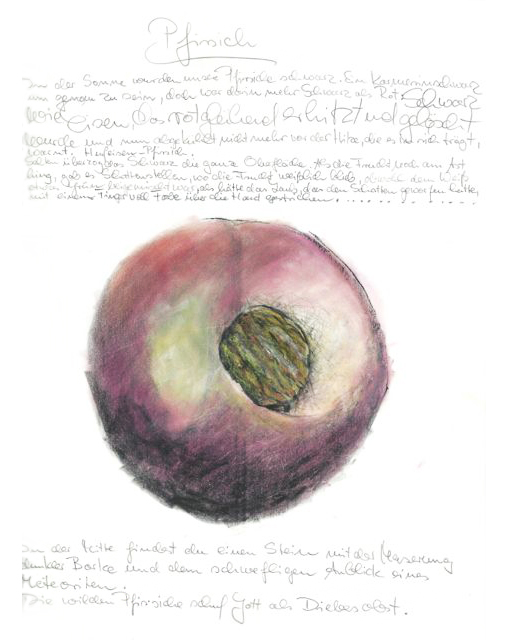 Pfirsich
In der Sonne wurden unsere Pfirsiche schwarz. Ein Karminschwarz
um genau zu sein, doch war darin mehr Schwarz als Rot. Schwarz
wie Eisen, das rotglühend erhitzt und gelöscht
wurde und nun abgekühlt nicht mehr vor der Hitze, die es in sich trägt,
warnt. Hufeisen-Pfirsich.
Selten überzog das Schwarz die ganze Oberfläche. Als die Frucht noch am Ast
hing, gab es Schattenstellen, wo die Frucht weißlich blieb, obwohl dem Weiß
etwas Grün beigemischt war, als hätte das Laub, das den Schatten geworfen hatte,
mit einem Finger voll Farbe über die Haut gestrichen.........
In der Mitte findest du einen Stein mit der Maserung
dunkler Borke und dem schwefligen Anblick eines
Meteoriten.
Die wilden Pfirsiche schuf Gott als Diebesobst.